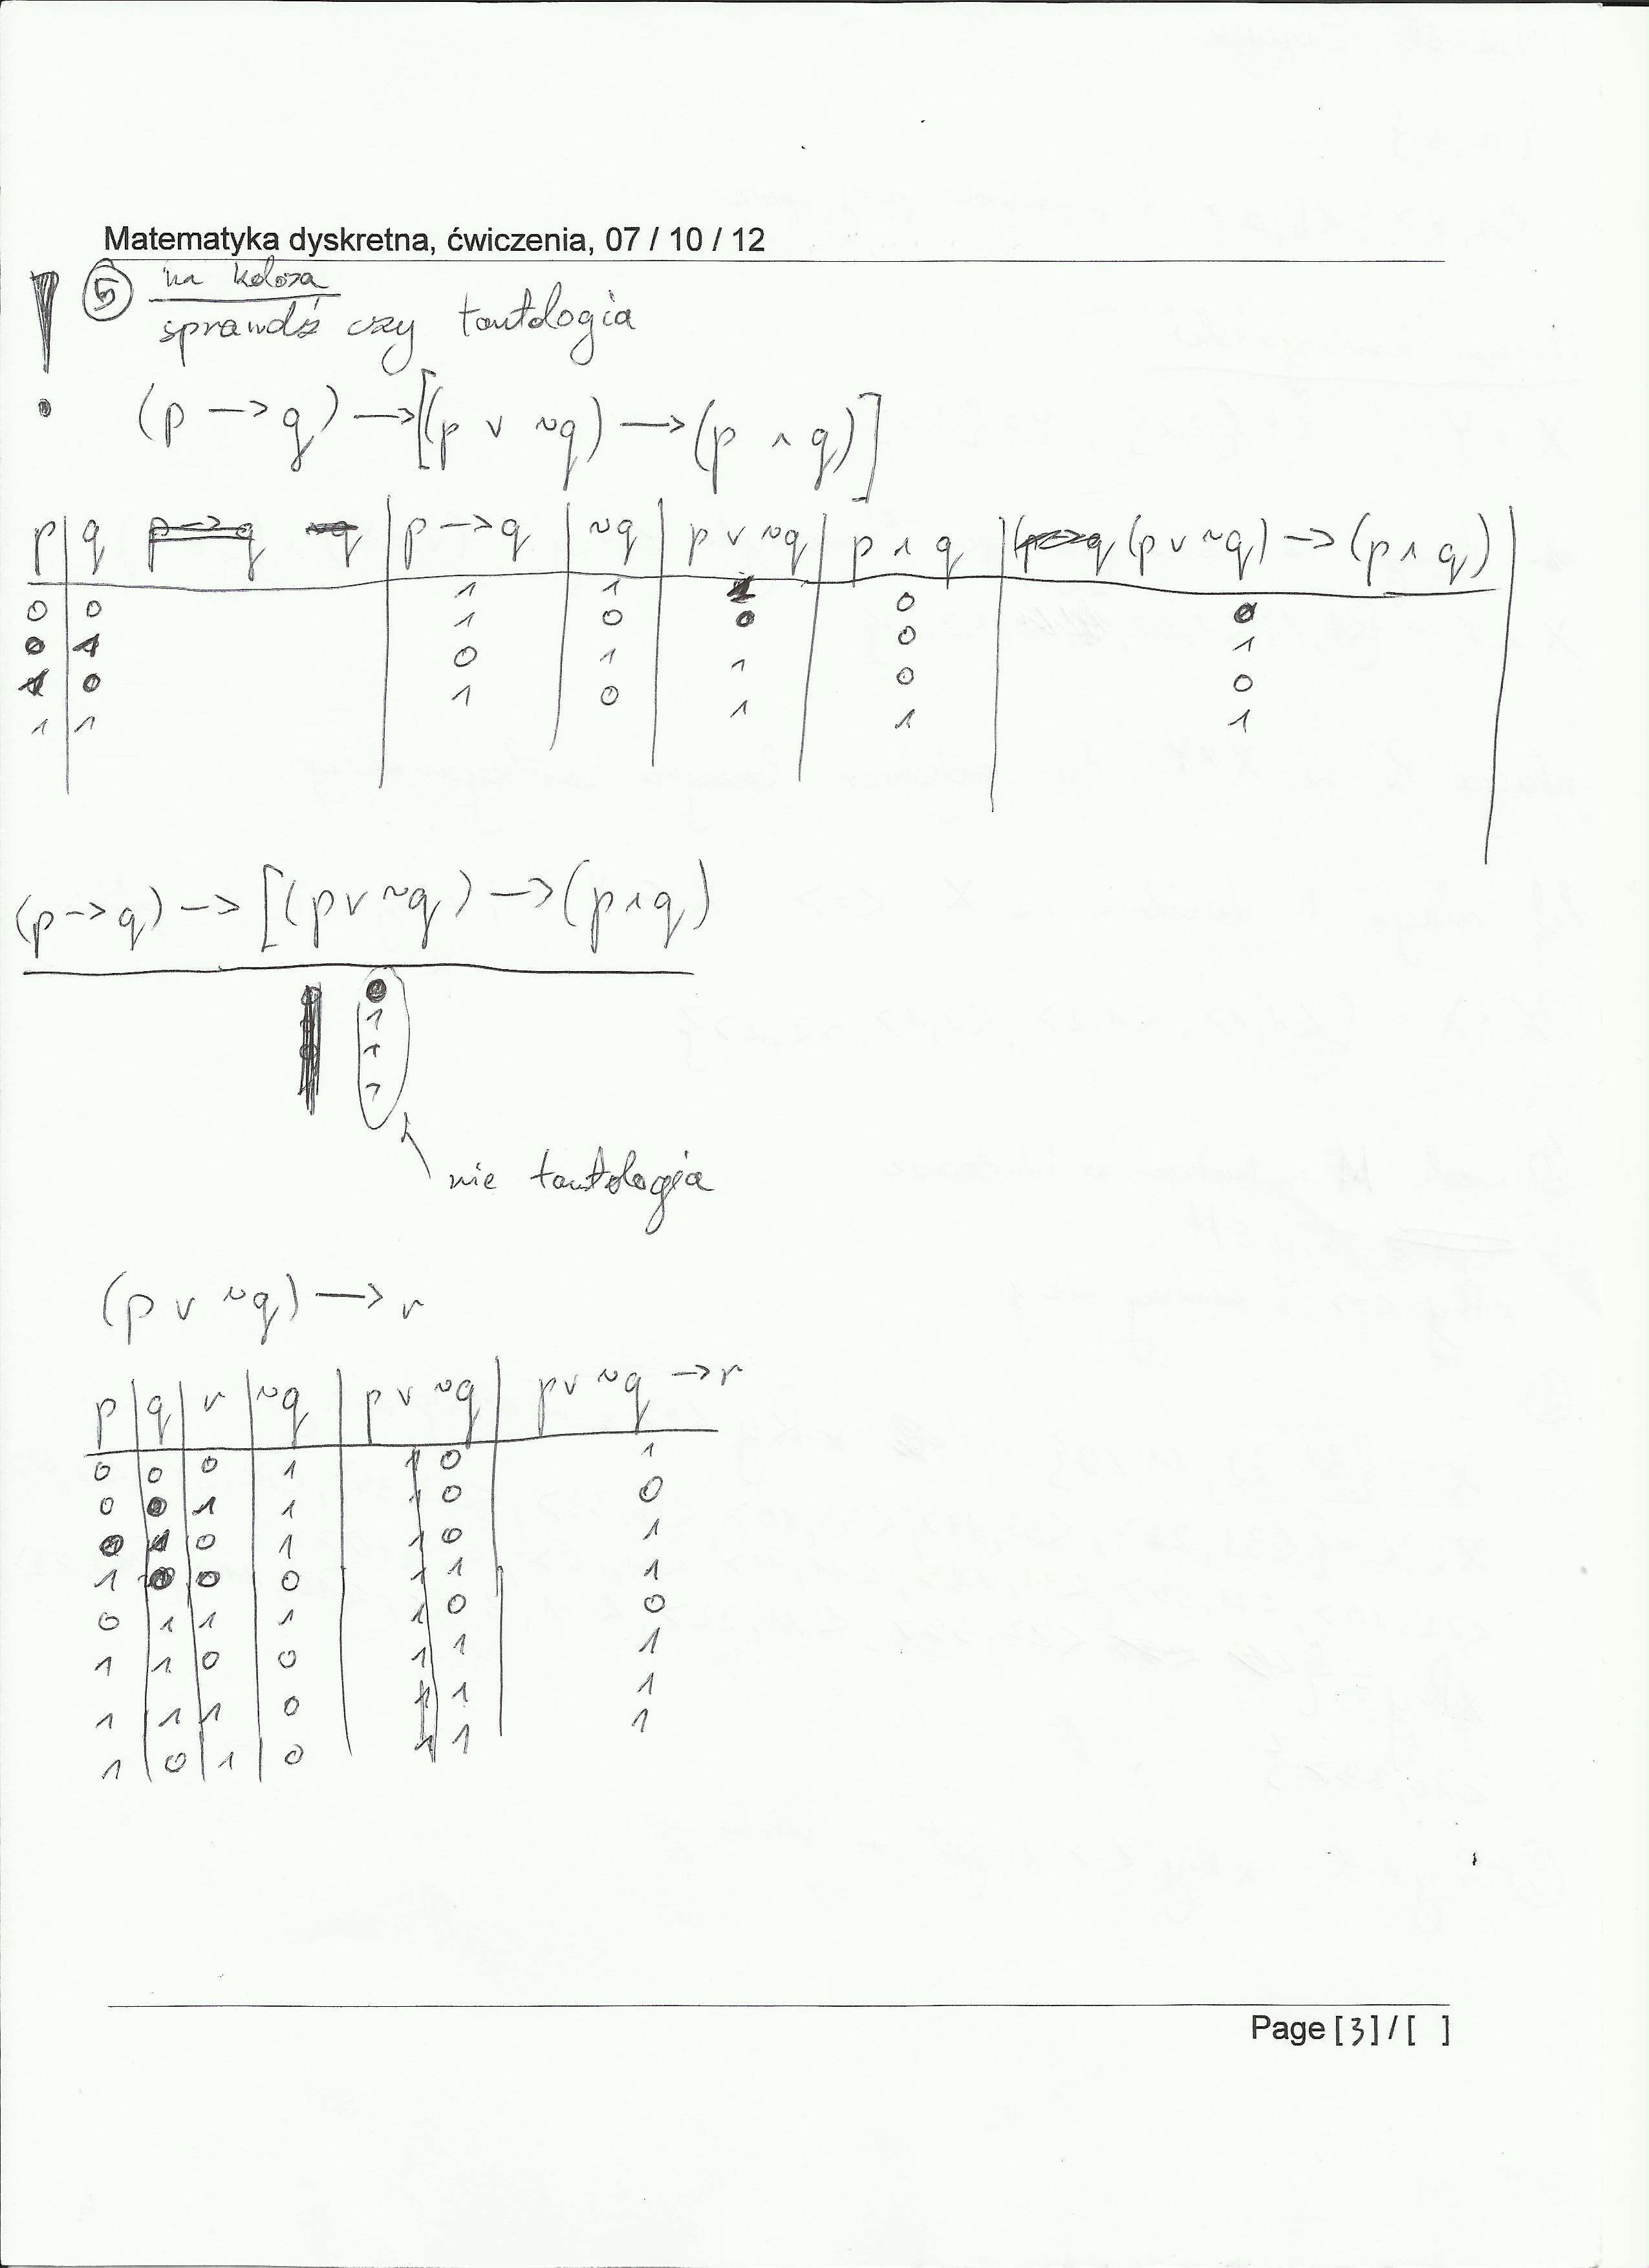 Matematyka dyskretna, ćwiczenia, 07 / 10 / 12
! 5 na kolosa
sprawdź czy tautologia
(p —> q) —> [(p ∨ ~q) —> (p ∧ q)]
p | q | p —> q | ~q | p ∨ ~q | p ∧ q | (p ∨ ~q) —> (p ∧ q)
0 | 0 | 1 | 1 | 1 | 0 | 0
0 | 1 | 1 | 0 | 0 | 0 | 1
1 | 0 | 0 | 1 | 1 | 0 | 0
1 | 1 | 1 | 0 | 1 | 1 | 1
(p —> q) —> [(p ∨ ~q) —> (p ∧ q)
0
1
1
1
nie tautologia
(p ∨ ~q) —> r
p | q | r | ~q | p ∨ ~q | p ∨ ~q —> r
0 | 0 | 0 | 1 | 0 | 1
0 | 0 | 1 | 1 | 0 | 0
0 | 1 | 0 | 1 | 0 | 1
1 | 0 | 0 | 0 | 1 | 1
0 | 1 | 1 | 1 | 0 | 0
1 | 1 | 0 | 0 | 1 | 1
1 | 1 | 1 | 0 | 1 | 1
1 | 0 | 1 | 0 | 1 | 1
Page [3] / [ ]